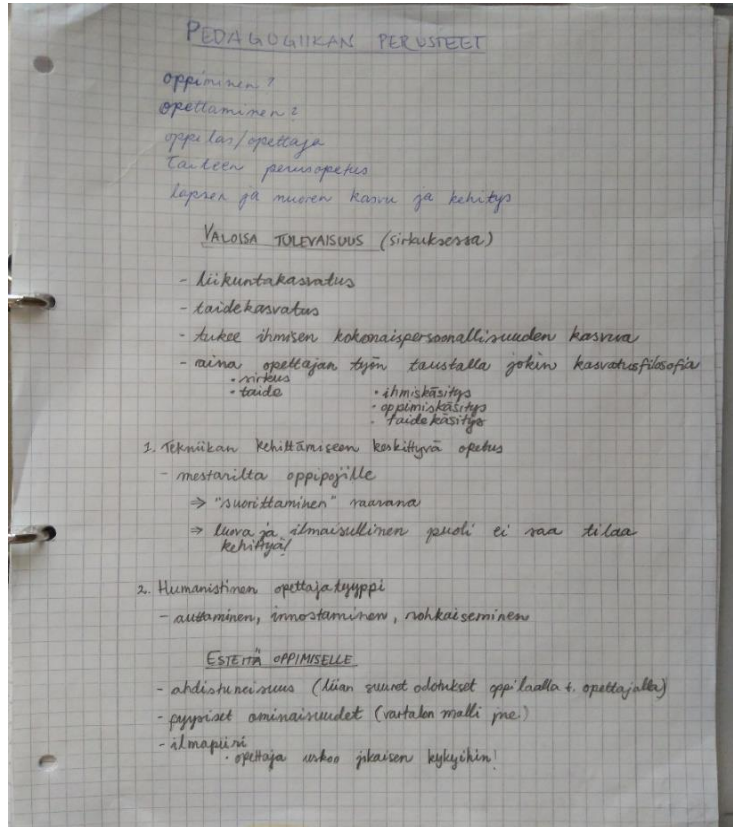 PEDAGOGIIKAN PERUSTEET
oppiminen?
opettaminen?
oppilas/opettaja
Taiteen perusopetus
lapsen ja nuoren kasvu ja kehitys
VALOISA TULEVAISUUS (sirkuksessa)
- liikuntakasvatus
- taidekasvatus
- tukee ihmisen kokonaispersoonallisuuden kasvua
- aina opettajan työn taustalla jokin kasvatusfilosofia
• sirkus • ihmiskäsitys
• taide • oppimiskäsitys
• taidekäsitys
1. Tekniikan kehittämiseen keskittyvä opetus
- mestarilta oppipojille
⇒ "suorittaminen" vaarana
⇒ luova ja ilmaisullinen puoli ei saa tilaa
kehittyä!
2. Humanistinen opettajatyyppi
- auttaminen, innostaminen, rohkaiseminen
ESTEITÄ OPPIMISELLE
- ahdistuneisuus (liian suuret odotukset oppilaalla t. opettajalla)
- fyysiset ominaisuudet (vartalon malli jne.)
- ilmapiiri
• opettaja uskoo jokaisen kykyihin!